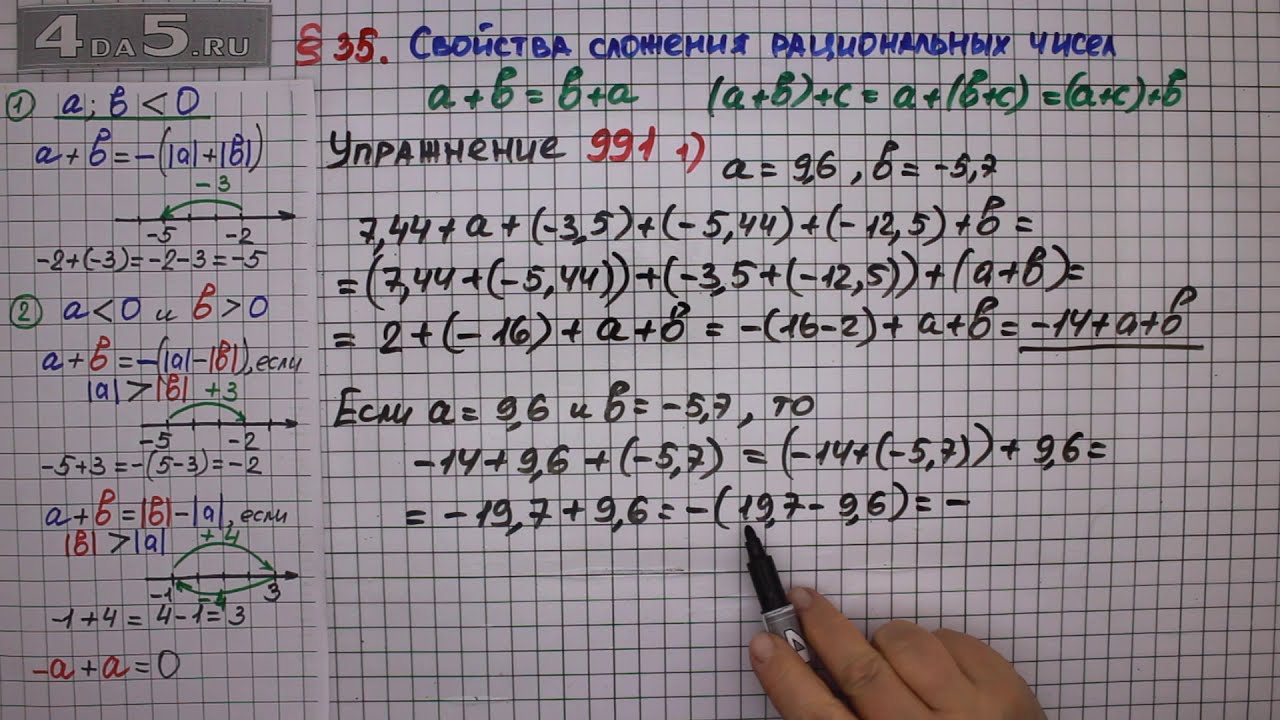 4DA5.RU
§ 35. Свойства сложения рациональных чисел
a+b=b+a (a+b)+c=a+(b+c)=(a+c)+b
① a; b < 0
a+b=-(|a|+|b|)
-3
-5 -2
-2+(-3)=-2-3=-5
② a<0 и b>0
a+b=-(|a|-|b|), если
|a|>|b| +3
-5 -2
-5+3=-(5-3)=-2
a+b=|b|-|a|, если
|b|>|a| +4
-1 -4 3
-1+4=4-1=3
-a+a=0
Упражнение 991 1) a=9,6, b=-5,7
7,44+a+(-3,5)+(-5,44)+(-12,5)+b=
=(7,44+(-5,44))+(-3,5+(-12,5))+(a+b)=
=2+(-16)+a+b=-(16-2)+a+b=-14+a+b
Если a=9,6 и b=-5,7, то
-14+9,6+(-5,7)=(-14+(-5,7))+9,6=
=-19,7+9,6=-(19,7-9,6)=-